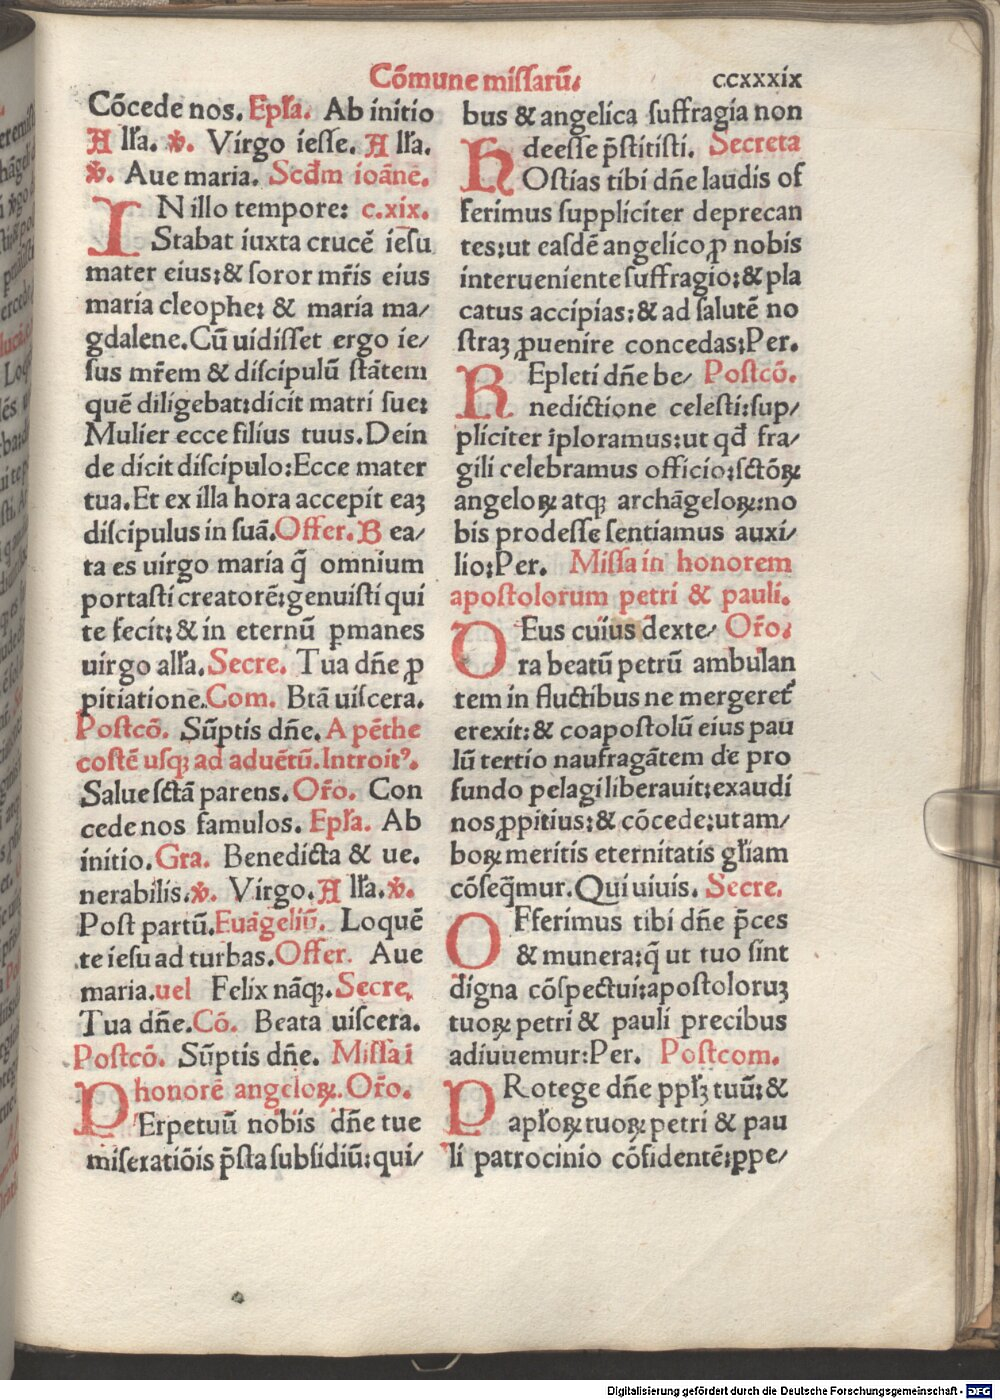 Cōmune missarū. ccxxxix
Cōcede nos. Epl̄a. Ab initio
All̄a. ℣. Virgo iesse. All̄a.
℣. Aue maria. Scd̄m ioānē.
IN illo tempore: c.xix.
Stabat iuxta crucē iesu
mater eius:& soror mr̄is eius
maria cleophe: & maria ma/
gdalene. Cū uidisset ergo ie/
sus mr̄em & discipulū stātem
quē diligebat:dicit matri sue:
Mulier ecce filius tuus. Dein
de dicit discipulo: Ecce mater
tua. Et ex illa hora accepit eaꝫ
discipulus in suā. Offer. Bea/
ta es uirgo maria q̄ omnium
portasti creatorē:genuisti qui
te fecit:& in eternū ꝑmanes
uirgo all̄a. Secre. Tua dn̄e ꝓ
pitiatione. Com. Btā uiscera.
Postcō. Sūptis dn̄e. A pēthe
costē usqꝫ ad aduētū. Introitꝰ.
Salue sctā parens. Or̄o. Con
cede nos famulos. Epl̄a. Ab
initio. Gra. Benedicta & ue.
nerabilis. ℣. Virgo. All̄a. ℣.
Post partū. Euāgeliū. Loquē
te iesu ad turbas. Offer. Aue
maria. uel Felix nāqꝫ. Secre.
Tua dn̄e. Cō. Beata uiscera.
Postcō. Sūptis dn̄e. Missa ī
honorē angeloꝝ. Or̄o.
PErpetuū nobis dn̄e tue
miseratiōis p̄sta subsidiū:qui/
bus & angelica suffragia non
deesse p̄stitisti. Secreta
HOstias tibi dn̄e laudis of
ferimus suppliciter deprecan
tes:ut easdē angelico ꝓ nobis
interueniente suffragio:& pla
catus accipias:& ad salutē no
straꝫ ꝓuenire concedas:Per.
REpleti dn̄e be/ Postcō.
nedictione celesti:sup/
pliciter īploramus:ut qd̄ fra/
gili celebramus officio:sctōꝝ
angeloꝝ atqꝫ archāgeloꝝ:no
bis prodesse sentiamus auxi/
lio:Per. Missa in honorem
apostolorum petri & pauli.
DEus cuius dexte/ Or̄o.
ra beatū petrū ambulan
tem in fluctibus ne mergeret̄
erexit:& coapostolū eius pau
lū tertio naufragātem de pro
fundo pelagi liberauit:exaudi
nos ꝓpitius:& cōcede:ut am/
boꝝ meritis eternitatis gl̄iam
cōseq̄mur. Qui uiuis. Secre.
OFferimus tibi dn̄e p̄ces
& munera:q̄ ut tuo sint
digna cōspectui:apostoloruꝫ
tuoꝝ petri & pauli precibus
adiuuemur:Per. Postcom.
PRotege dn̄e ppl̄ꝫ tuū:&
apl̄oꝝ tuoꝝ petri & pau
li patrocinio cōfidentē:ꝑpe/
Digitalisierung gefördert durch die Deutsche Forschungsgemeinschaft - DFG